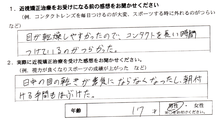 1. 近視矯正治療をお受けになる前の感想をお聞かせください
(例. コンタクトレンズを毎日つけるのが大変、スポーツする時に外れるのがつらいなど)
目が乾燥しやすかったので、コンタクトを長い時間
つけているのがつらかった。
2. 実際に近視矯正治療を受けられた後の感想をお聞かせください
(例. 視力が良好になりスポーツの成績が上がったなど)
日中の目の乾きが全然気にならなくなったし、朝付
ける手間も省けた。
年齢 17 才 男性 / 女性